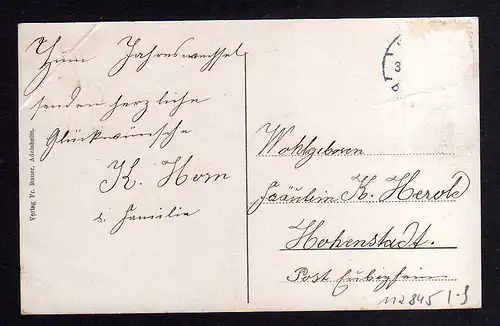 Zum Jahreswechsel
senden herzliche
Glückwünsche
K. Horn
u. Familie
Verlag Fr. Bauer, Adelsheim.
Wohlgeboren
Fräulein K. Herold
Hohenstadt.
Post Eubigheim
112845